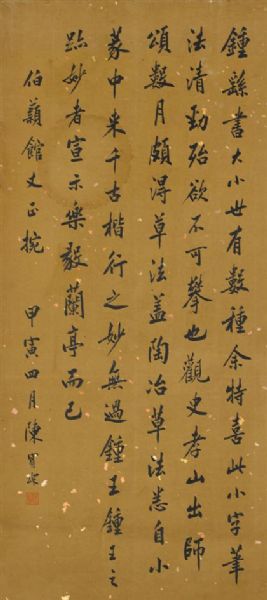 鍾繇書大小世有數種余特喜此小字筆
法清勁殆欲不可攀也觀史孝山出師
頌數月頗得草法蓋陶冶草法悉自小
篆中来千古楷行之妙無過鍾王鍾王之
跡妙者宣示樂毅蘭亭而已
伯蘋館丈正捥
甲寅四月陳寶琛